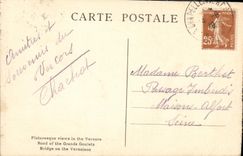 CARTE POSTALE
Amitiés et
souvenirs du
Vercors
Madame Berthet
Passage Imbault
Maisons-Alfort
Seine
25
Picturesque views in the Vercors
Road of the Grands Goulets
Bridge on the Vernaison